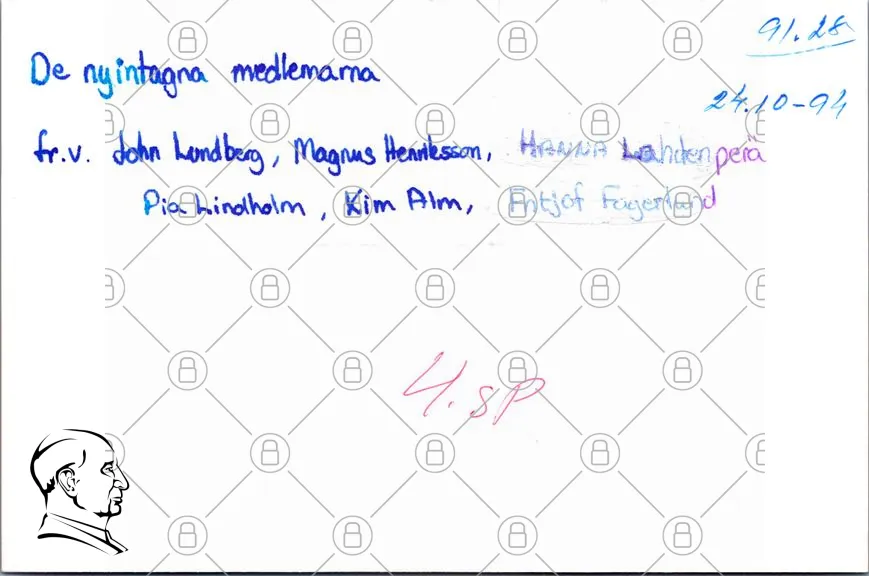 91.28
De nyintagna medlemarna
24.10-94
fr.v. John Lundberg, Magnus Henriksson, HANNA Lahdenperä
Pia Lindholm, Kim Alm, Fritjof Fagerlund
4. SP